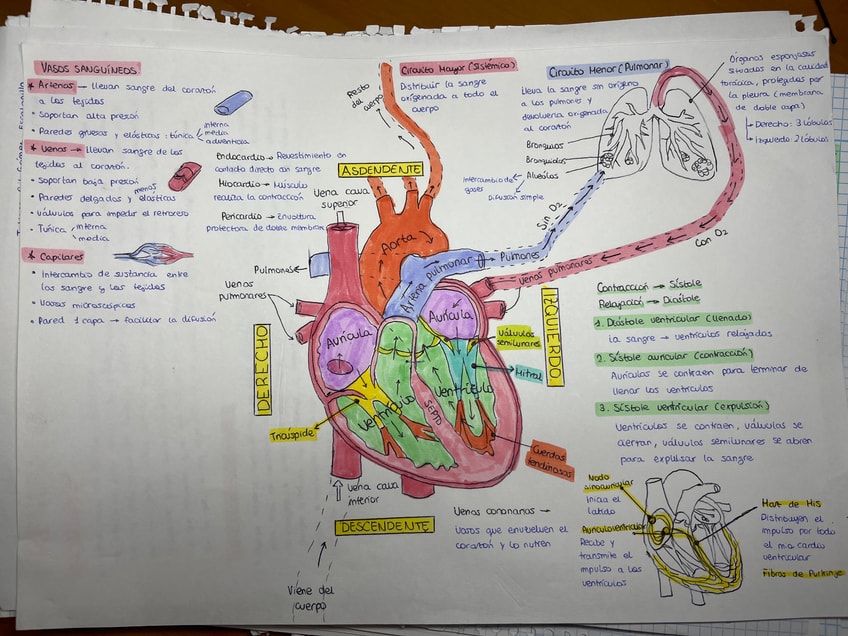 VASOS SANGUÍNEOS
* Arterias → llevan sangre del corazón
a los tejidos
• Soportan alta presión
• Paredes gruesas y elásticas: túnica
interna
media
adventicia
* Venas → llevan sangre de los
tejidos al corazón.
• Soportan baja presión
• Paredes delgadas y menos elásticas
• válvulas para impedir el retroceso
• Túnica
interna
media
* Capilares
• Intercambio de sustancia entre
la sangre y los tejidos
• Vasos microscópicos
• Pared 1 capa → facilitar la difusión
Endocardio → Revestimiento en
contacto directo sin sangre
Miocardio → Músculo
realiza la contracción
Pericardio → Envoltura
protectora de doble membrana
Resto
del cuerpo
Circuito Mayor (Sistémico)
Distribuir la sangre
oxigenada a todo el
cuerpo
Circuito Menor (Pulmonar)
Lleva la sangre sin oxígeno
a los pulmones y
devolverla oxigenada
al corazón
Bronquios
Bronquiolos
Alveolos
Intercambio de
gases
Difusión simple
Órganos esponjosos
situados en la cavidad
torácica, protegidos por
la pleura (membrana
de doble capa)
Derecho: 3 lóbulos
Izquierdo: 2 lóbulos
ASDENDENTE
Vena cava
superior
Aorta
Arteria Pulmonar
Pulmones
Sin O2
Con O2
Venas pulmonares
Pulmones
Venas
pulmonares
Aurícula
Aurícula
DERECHO
IZQUIERDO
Válvulas
semilunares
Mitral
Ventrículo
Ventrículo
Septo
Tricúspide
Cuerdas
tendinosas
Vena cava
inferior
DESCENDENTE
Viene del
cuerpo
Venas coronarias →
Vasos que envuelven el
corazón y lo nutren
Contracción → Sístole
Relajación → Diástole
1. Diástole ventricular (llenado)
la sangre → ventrículos relajados
2. Sístole auricular (contracción)
Aurículas se contraen para terminar de
llenar los ventrículos
3. Sístole ventricular (expulsión)
Ventrículos se contraen, válvulas se
cierran, válvulas semilunares se abren
para expulsar la sangre
Nodo
sinoauricular
Inicia el
latido
Auriculoventricular
Recibe y
transmite el
impulso a los
ventrículos
Haz de His
Distribuyen el
impulso por todo
el mio cardio
ventricular
Fibras de Purkinje